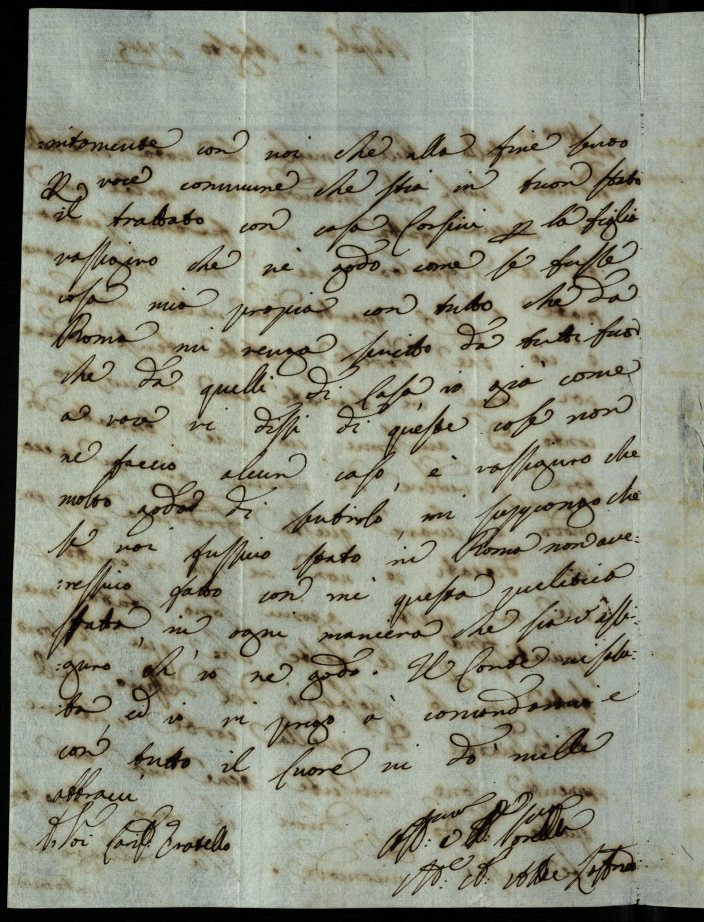 :ntamente con voi che alla fine sento
voce commune che stia in buon stato
il trattato con casa Corsini p la figlia
vassiguro che ne godo come se fusse
cosa mia propia con tutto che da
Roma mi venga scritto da tutti fuor
che da quelli di Casa, io già come
a voce vi dissi di queste cose non
ne faccio alcun caso, e vassiguro che
molto godo di sentirlo, mi suppcongo che
se voi fussivo stato in Roma non ave:
:ressivo fatto con me questa
fatta, in ogni maniera che sia v'assi:
:guro ch'io ne godo. Il Conte vi salu:
ta, ed io vi prego à comandarmi e
con tutto il Cuore vi dò mille
abbracci
Di Voi Cariss.º Fratello
Aff.ma e Sorella